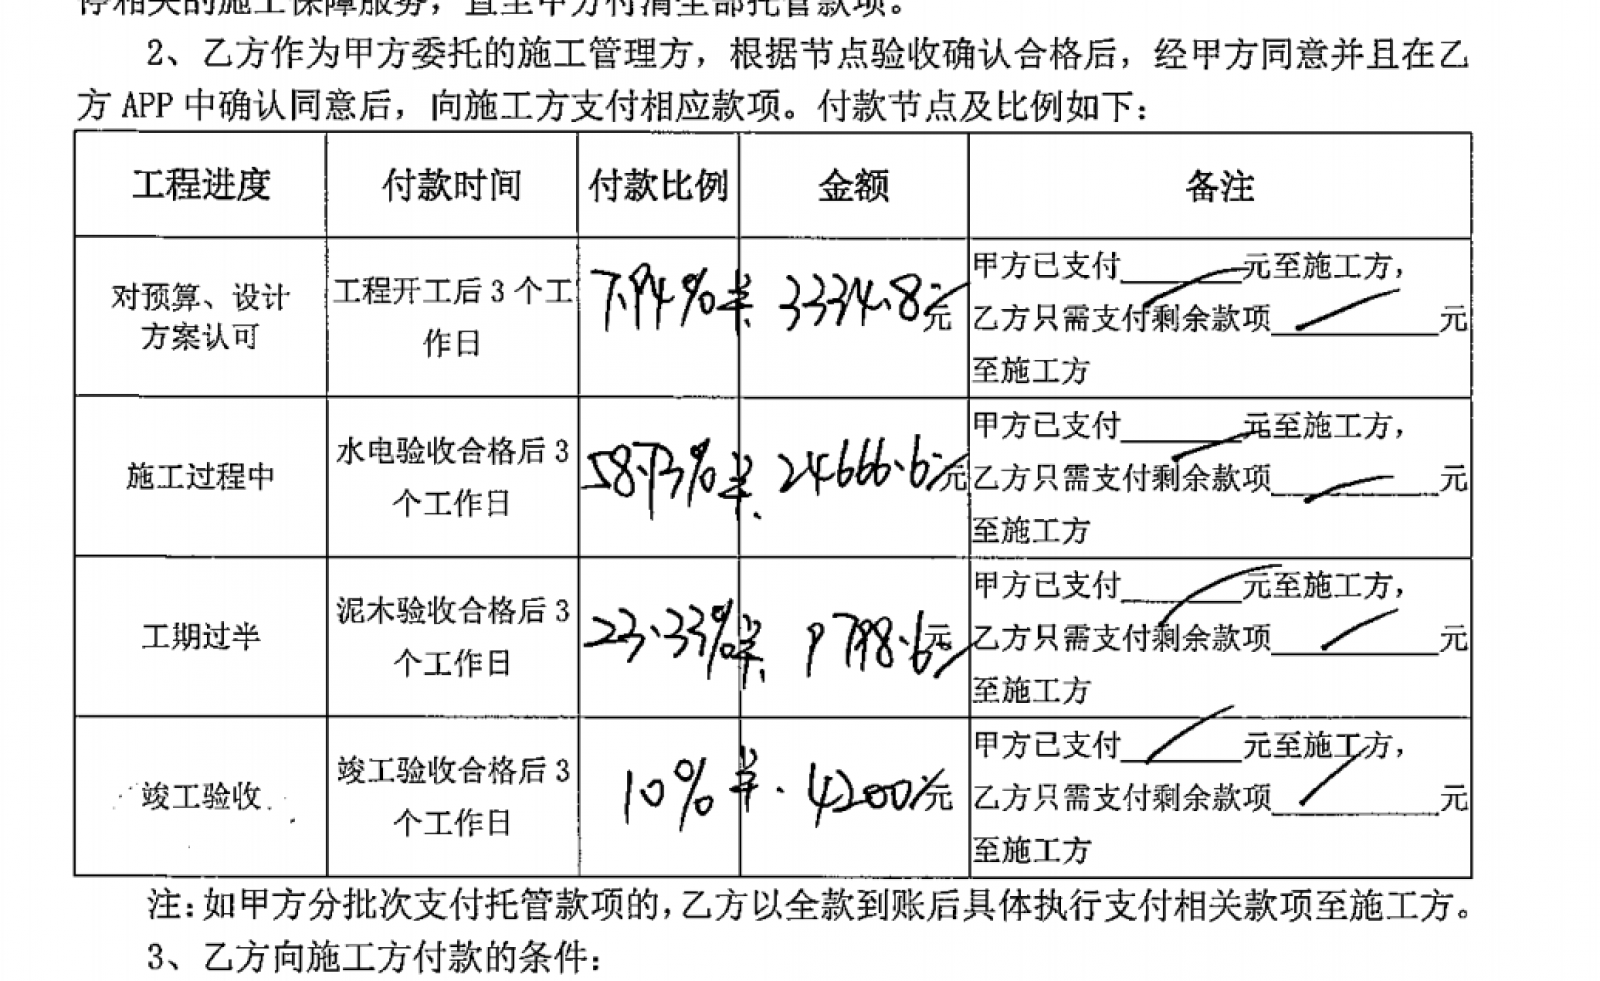 停相关的施工保障服务，直至甲方付清全部托管款项。
2、乙方作为甲方委托的施工管理方，根据节点验收确认合格后，经甲方同意并且在乙
方 APP 中确认同意后，向施工方支付相应款项。付款节点及比例如下：
工程进度 付款时间 付款比例 金额 备注
对预算、设计
方案认可
工程开工后 3 个工
作日
7.94%
¥ 3334.8元
甲方已支付______元至施工方，
乙方只需支付剩余款项________元
至施工方
施工过程中
水电验收合格后 3
个工作日
58.73%
¥ 24666.6元
甲方已支付______元至施工方，
乙方只需支付剩余款项________元
至施工方
工期过半
泥木验收合格后 3
个工作日
23.33%
¥ 9798.6元
甲方已支付______元至施工方，
乙方只需支付剩余款项________元
至施工方
竣工验收
竣工验收合格后 3
个工作日
10%
¥ 4200元
甲方已支付______元至施工方，
乙方只需支付剩余款项________元
至施工方
注：如甲方分批次支付托管款项的，乙方以全款到账后具体执行支付相关款项至施工方。
3、乙方向施工方付款的条件：